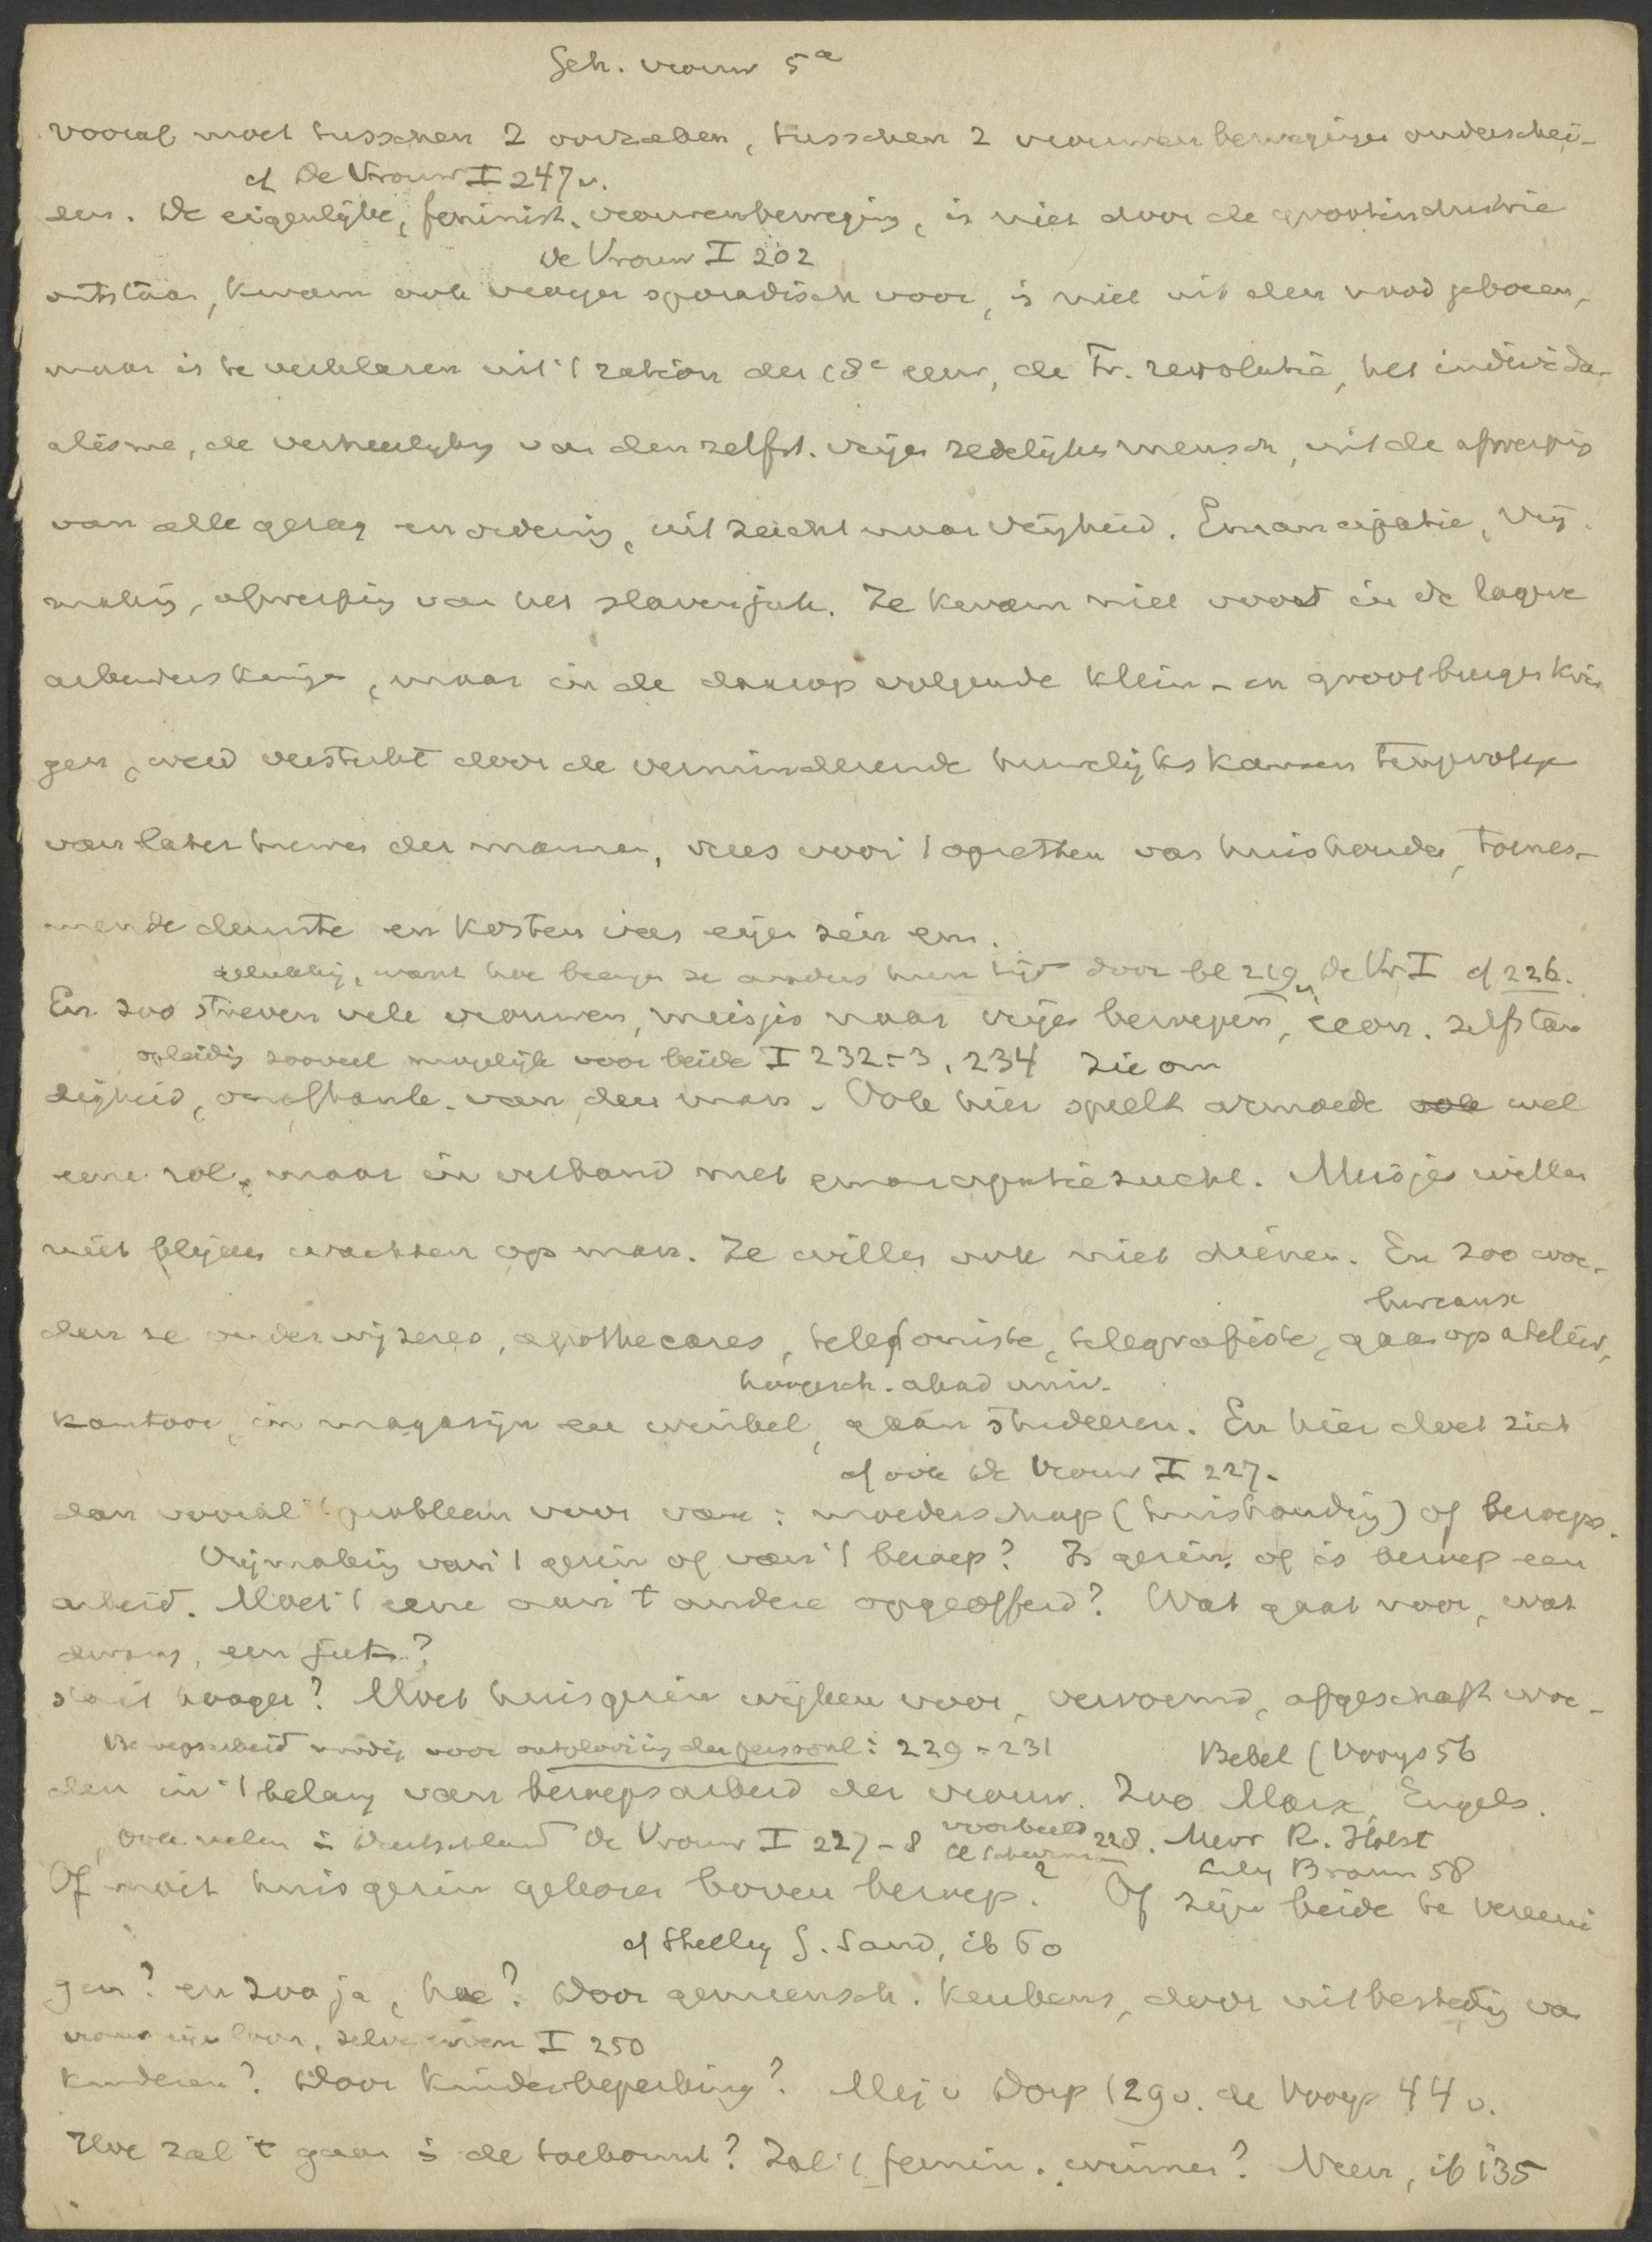 Geh. vrouw 5a
Vooral moet tusschen 2 oorzaken, tusschen 2 vrouwenbewegingen onderschei-
cf De Vrouw I 247 v.
den. De eigenlijke, feminist. vrouwenbeweging, is niet door de grootindustrie
de Vrouw I 202
ontstaan, kwam ook vroeger sporadisch voor, is niet uit den nood geboren,
maar is te verklaren uit 't ration der 18e eeuw, de Fr. revolutie, het individu-
alisme, de verheerlijking van den zelfst. vrijen redelijken mensch, uit de afwerping
van alle gezag en ordening, uit zucht naar vrijheid. Emancipatie, vrij-
making, afwerping van het slavenjuk. Ze kwam niet voort in de lagere
arbeiderskringen, maar in de daarop volgende klein- en grootburgerkrin
gen, werd versterkt door de verminderende huwelijkskansen tengevolge
van later huwen der mannen, vrees voor 't opzetten van huishouden, toene-
mende diensten en kosten van eigen gezin enz.
gelukkig, want hoe brengen ze anders hun tijd door bl 219 v De Vr I cf 226.
En zoo streven vele vrouwen, meisjes naar vrije beroepen, econ. zelfstan
opleiding zooveel mogelijk voor beide I 232-3, 234 zie om
digheid, onafhank. van den man. Ook hier speelt armoede ook wel
eene rol, maar in verband met emancipatiezucht. Meisjes willen
niet blijven wachten op man. Ze willen ook niet dienen. En zoo wor-
bureaux
den ze onderwijzeres, apothecares, telefoniste, telegrafiste, gaan op atelier,
hoogesch. akad univ.
kantoor, in magazijn en winkel, gaan studeeren. En hier doet zich
cf ook De Vrouw I 227.
dan vooral 't probleem voor van: moederschap (huishouding) of beroeps-
Vrijmaking van 't gezin of van 't beroep? Is gezin, of is beroep een
arbeid. Moet 't eene aan 't andere opgeofferd? Wat gaat voor, wat
dwang, een juk?
staat hooger? Moet huisgezin wijken voor, vervormd, afgeschaft wor-
Beroepsarbeid noodig voor ontplooiing der persoonl: 229-231 Bebel (Vooys 56
den in 't belang van beroepsarbeid der vrouw. Zoo Marx, Engels.
ook velen in Duitschland De Vrouw I 227-8 voorbeeld 228. Mevr R. Holst
Lily Braun 58
Of moet huisgezin gekozen boven beroep? Of zijn beide te vereeni
cf Shelley G. Sand, ib 60
gen? en zoo ja, hoe? Door gemeensch. keukens, door uitbesteding van
vrouw eigen loon, I 250
kinderen? Door kinderbeperking? Mej v Dorp 129 v. de Vooys 44 v.
Hoe zal 't gaan in de toekomst? Zal 't femin. winnen? Neen, ib 135